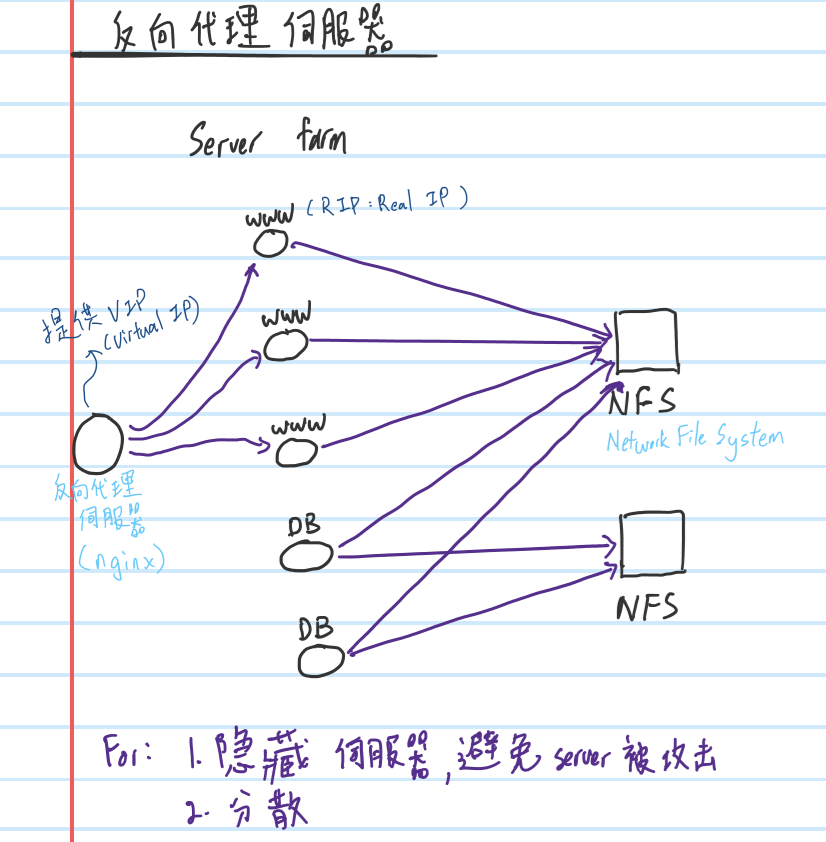 反向代理 伺服器
Server farm
www (RIP:Real IP)
提供 VIP
(Virtual IP)
www
www
反向代理
伺服器
(nginx)
DB
DB
NFS
Network File System
NFS
For: 1. 隱藏 伺服器, 避免 server 被攻击
2. 分散